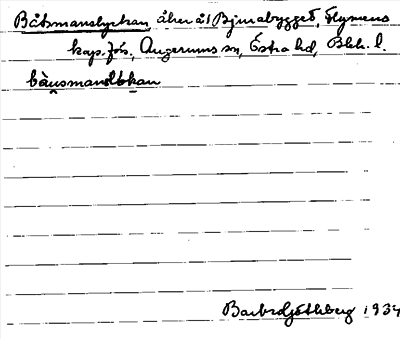 Båtsmanslyckan, åker åt Bjurabygget, Flymens
kap.förs, Augerums sn, Östra hd, Blek. l.
Barbro Ljóthberg 1934